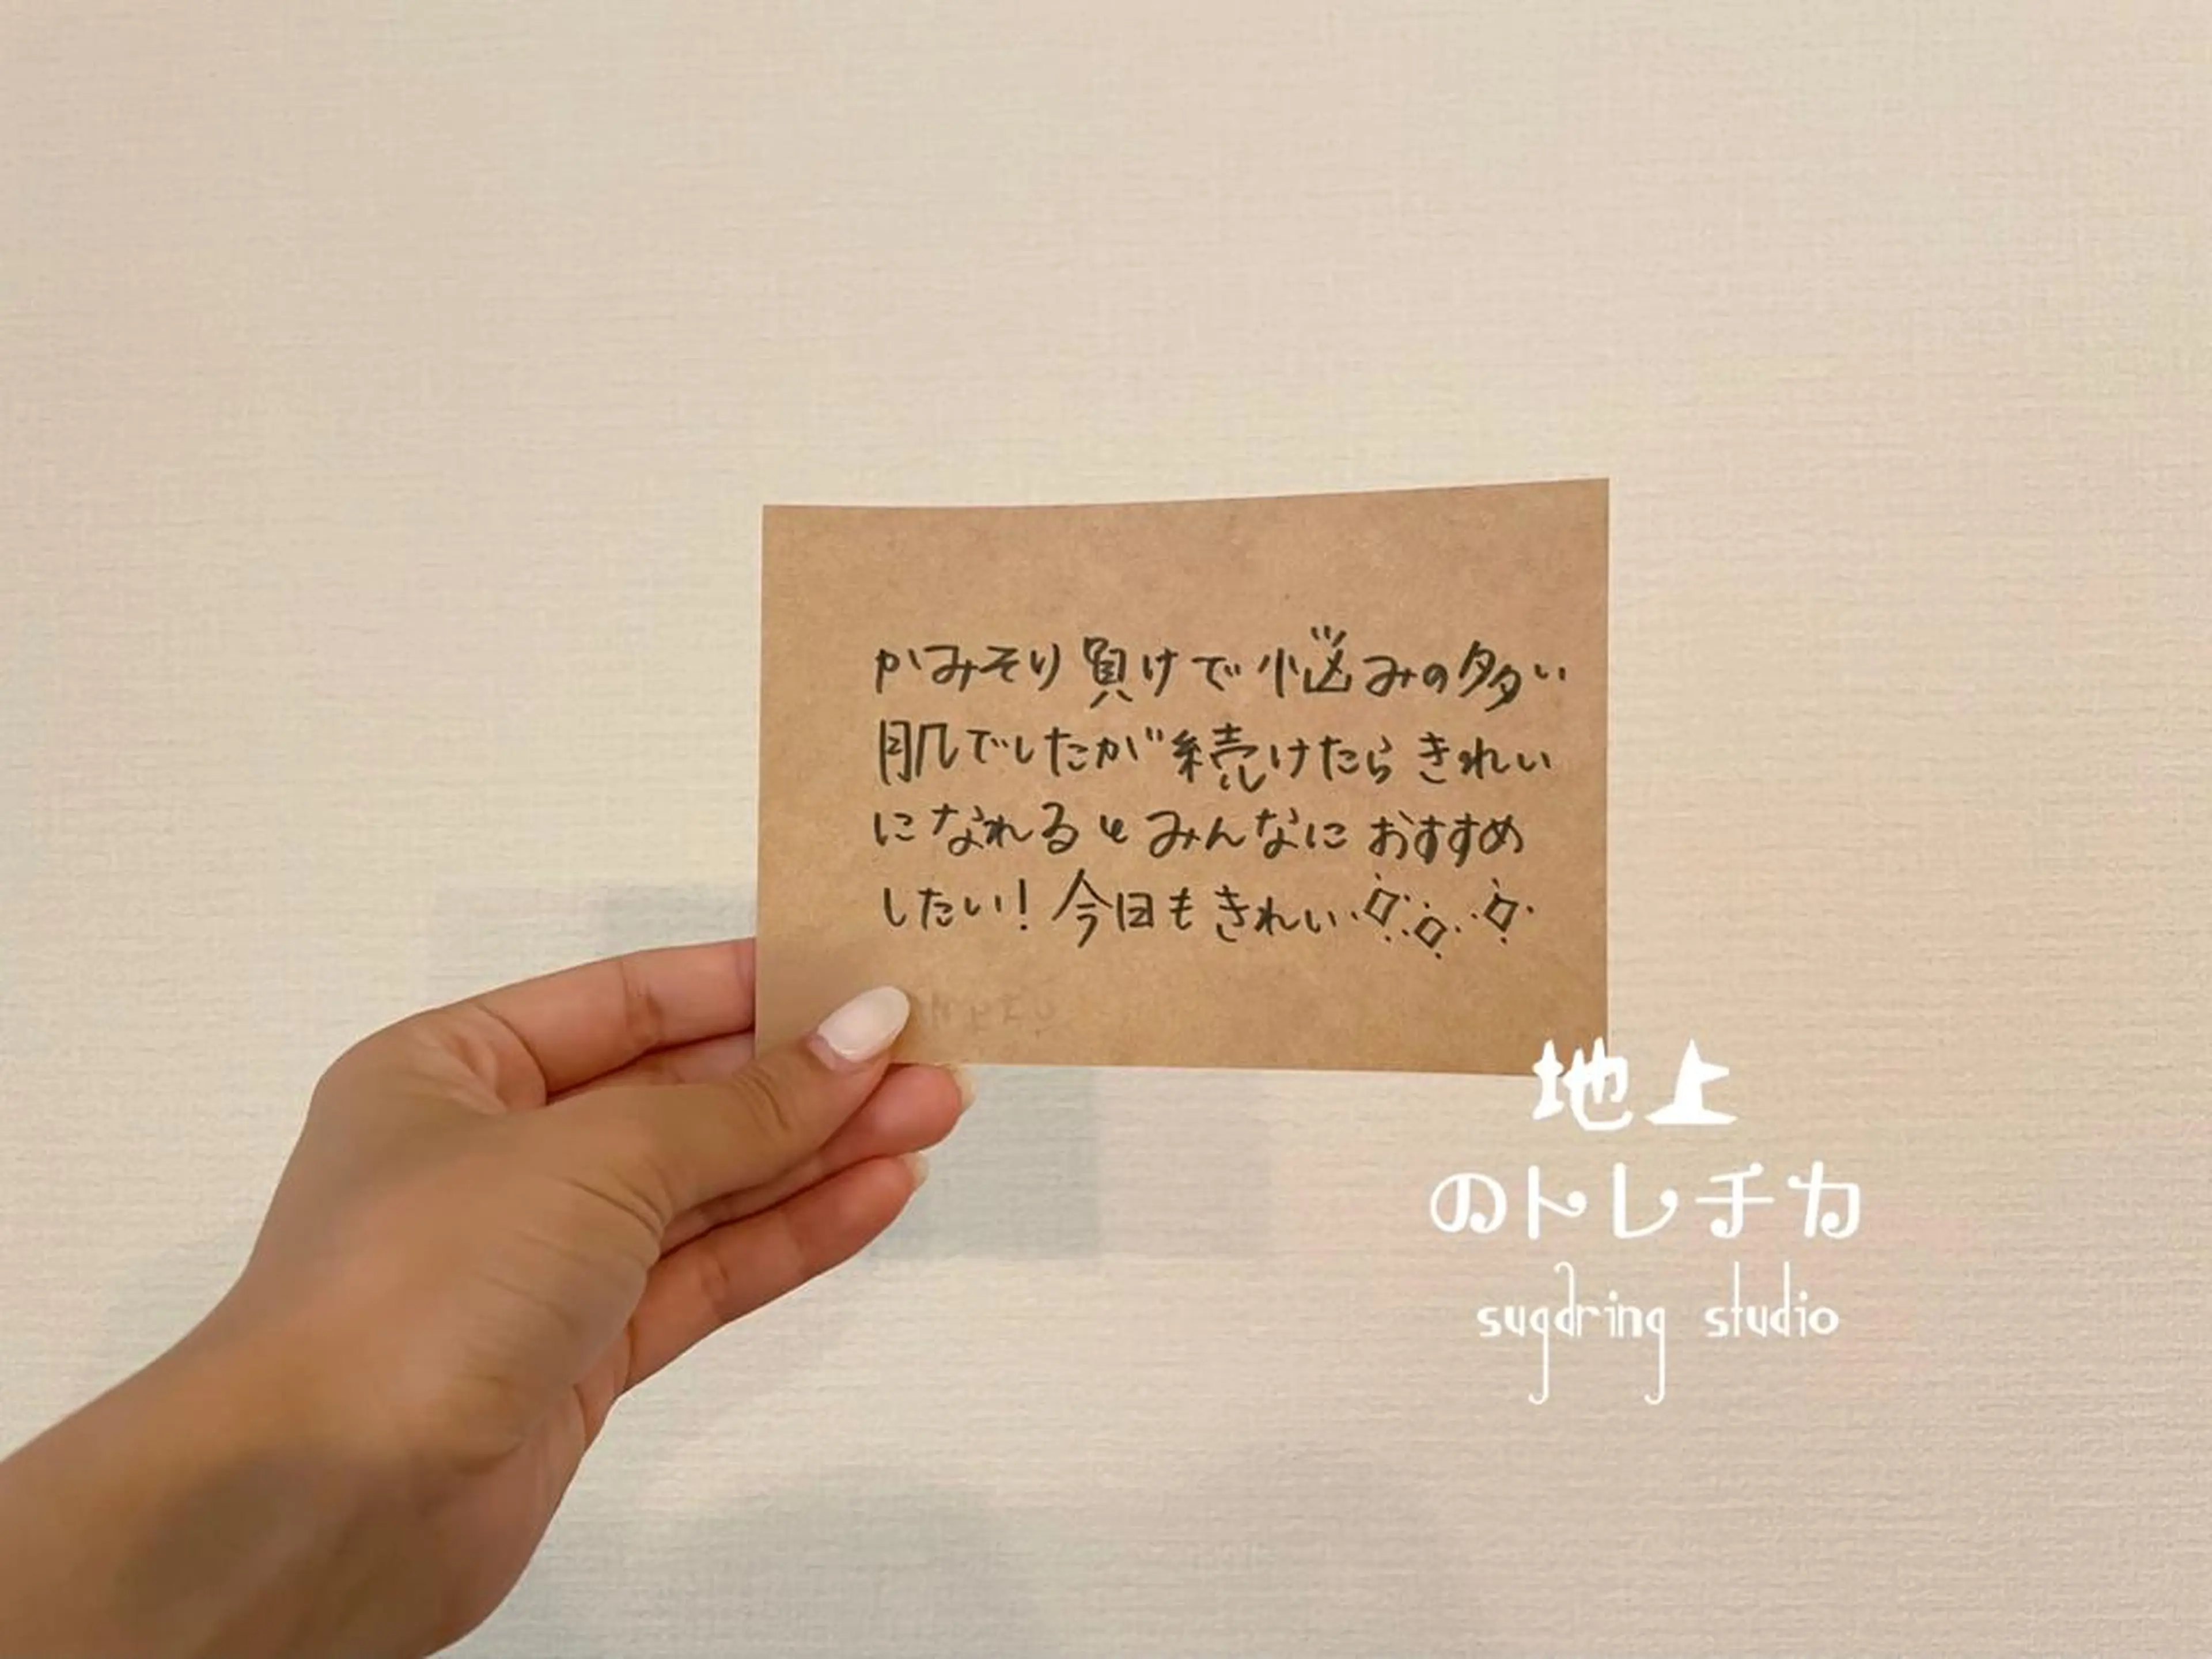 かみそり負けで悩みの多い
肌でしたが続けたらきれい
になれるとみんなにおすすめ
したい！今日もきれい
地上
のトレチカ
sugdring studio